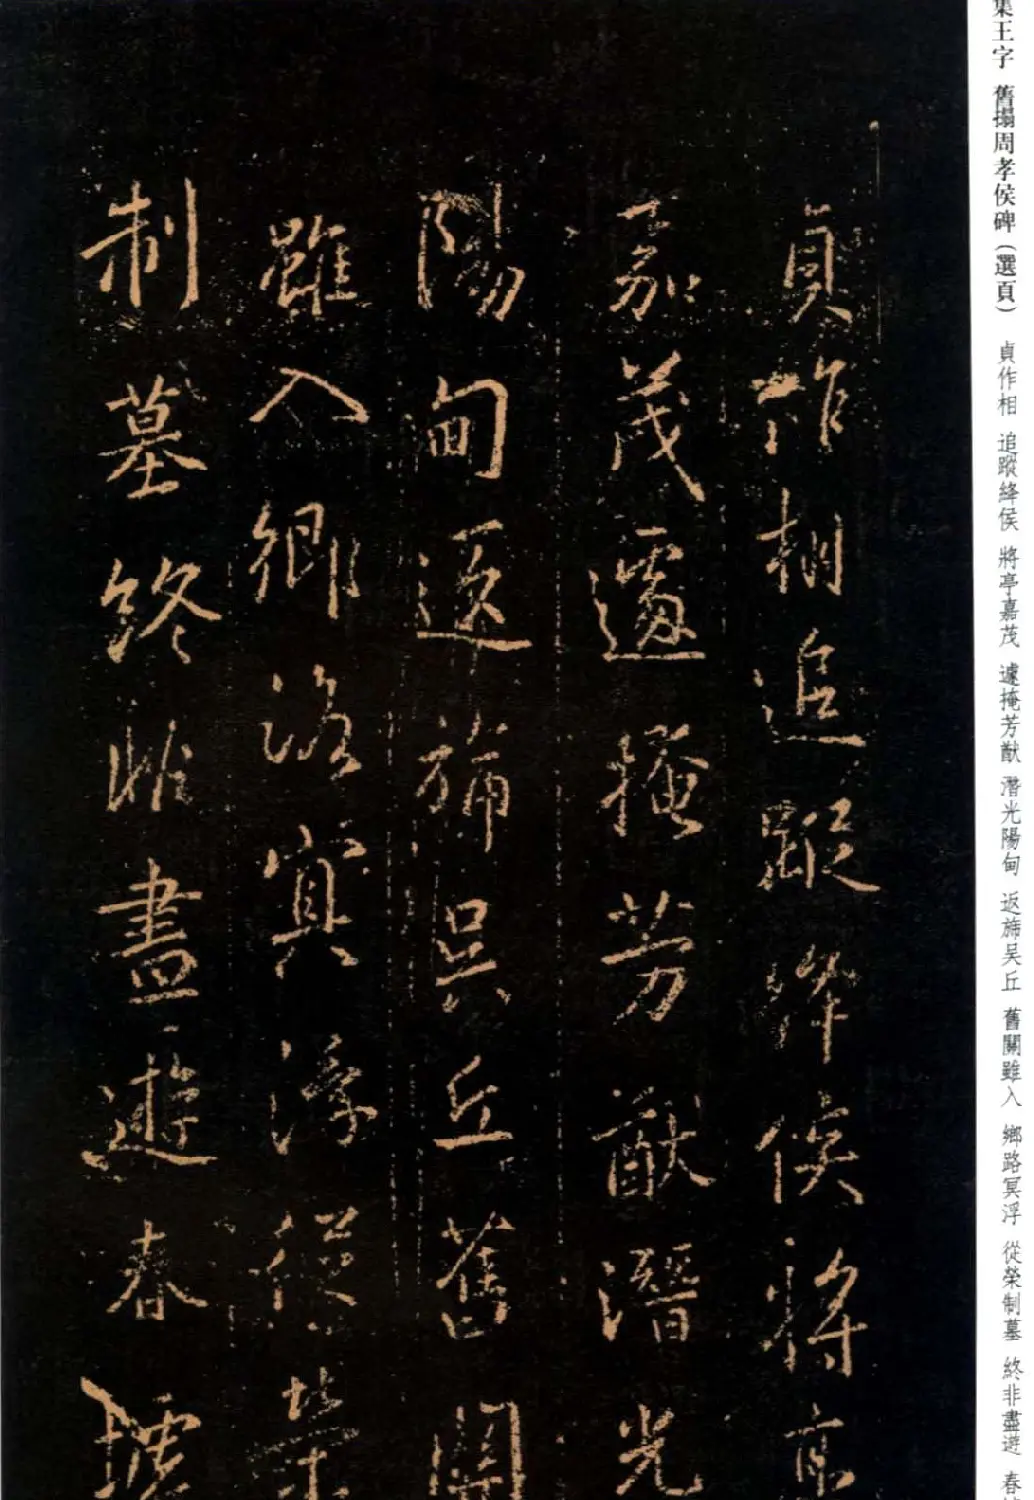 集王字 舊搨周孝侯碑（選頁） 貞作相 追蹤絳侯 將亭嘉茂 遽掩芳猷 潛光陽甸 返旆吴丘 舊關雖入 鄉路冥浮 從榮制墓 終非盡遊 春
貞作相追蹤絳侯將亭
嘉茂遽掩芳猷潛光
陽甸返旆吳丘舊關
雖入鄉路冥浮從榮
制墓終非盡遊春